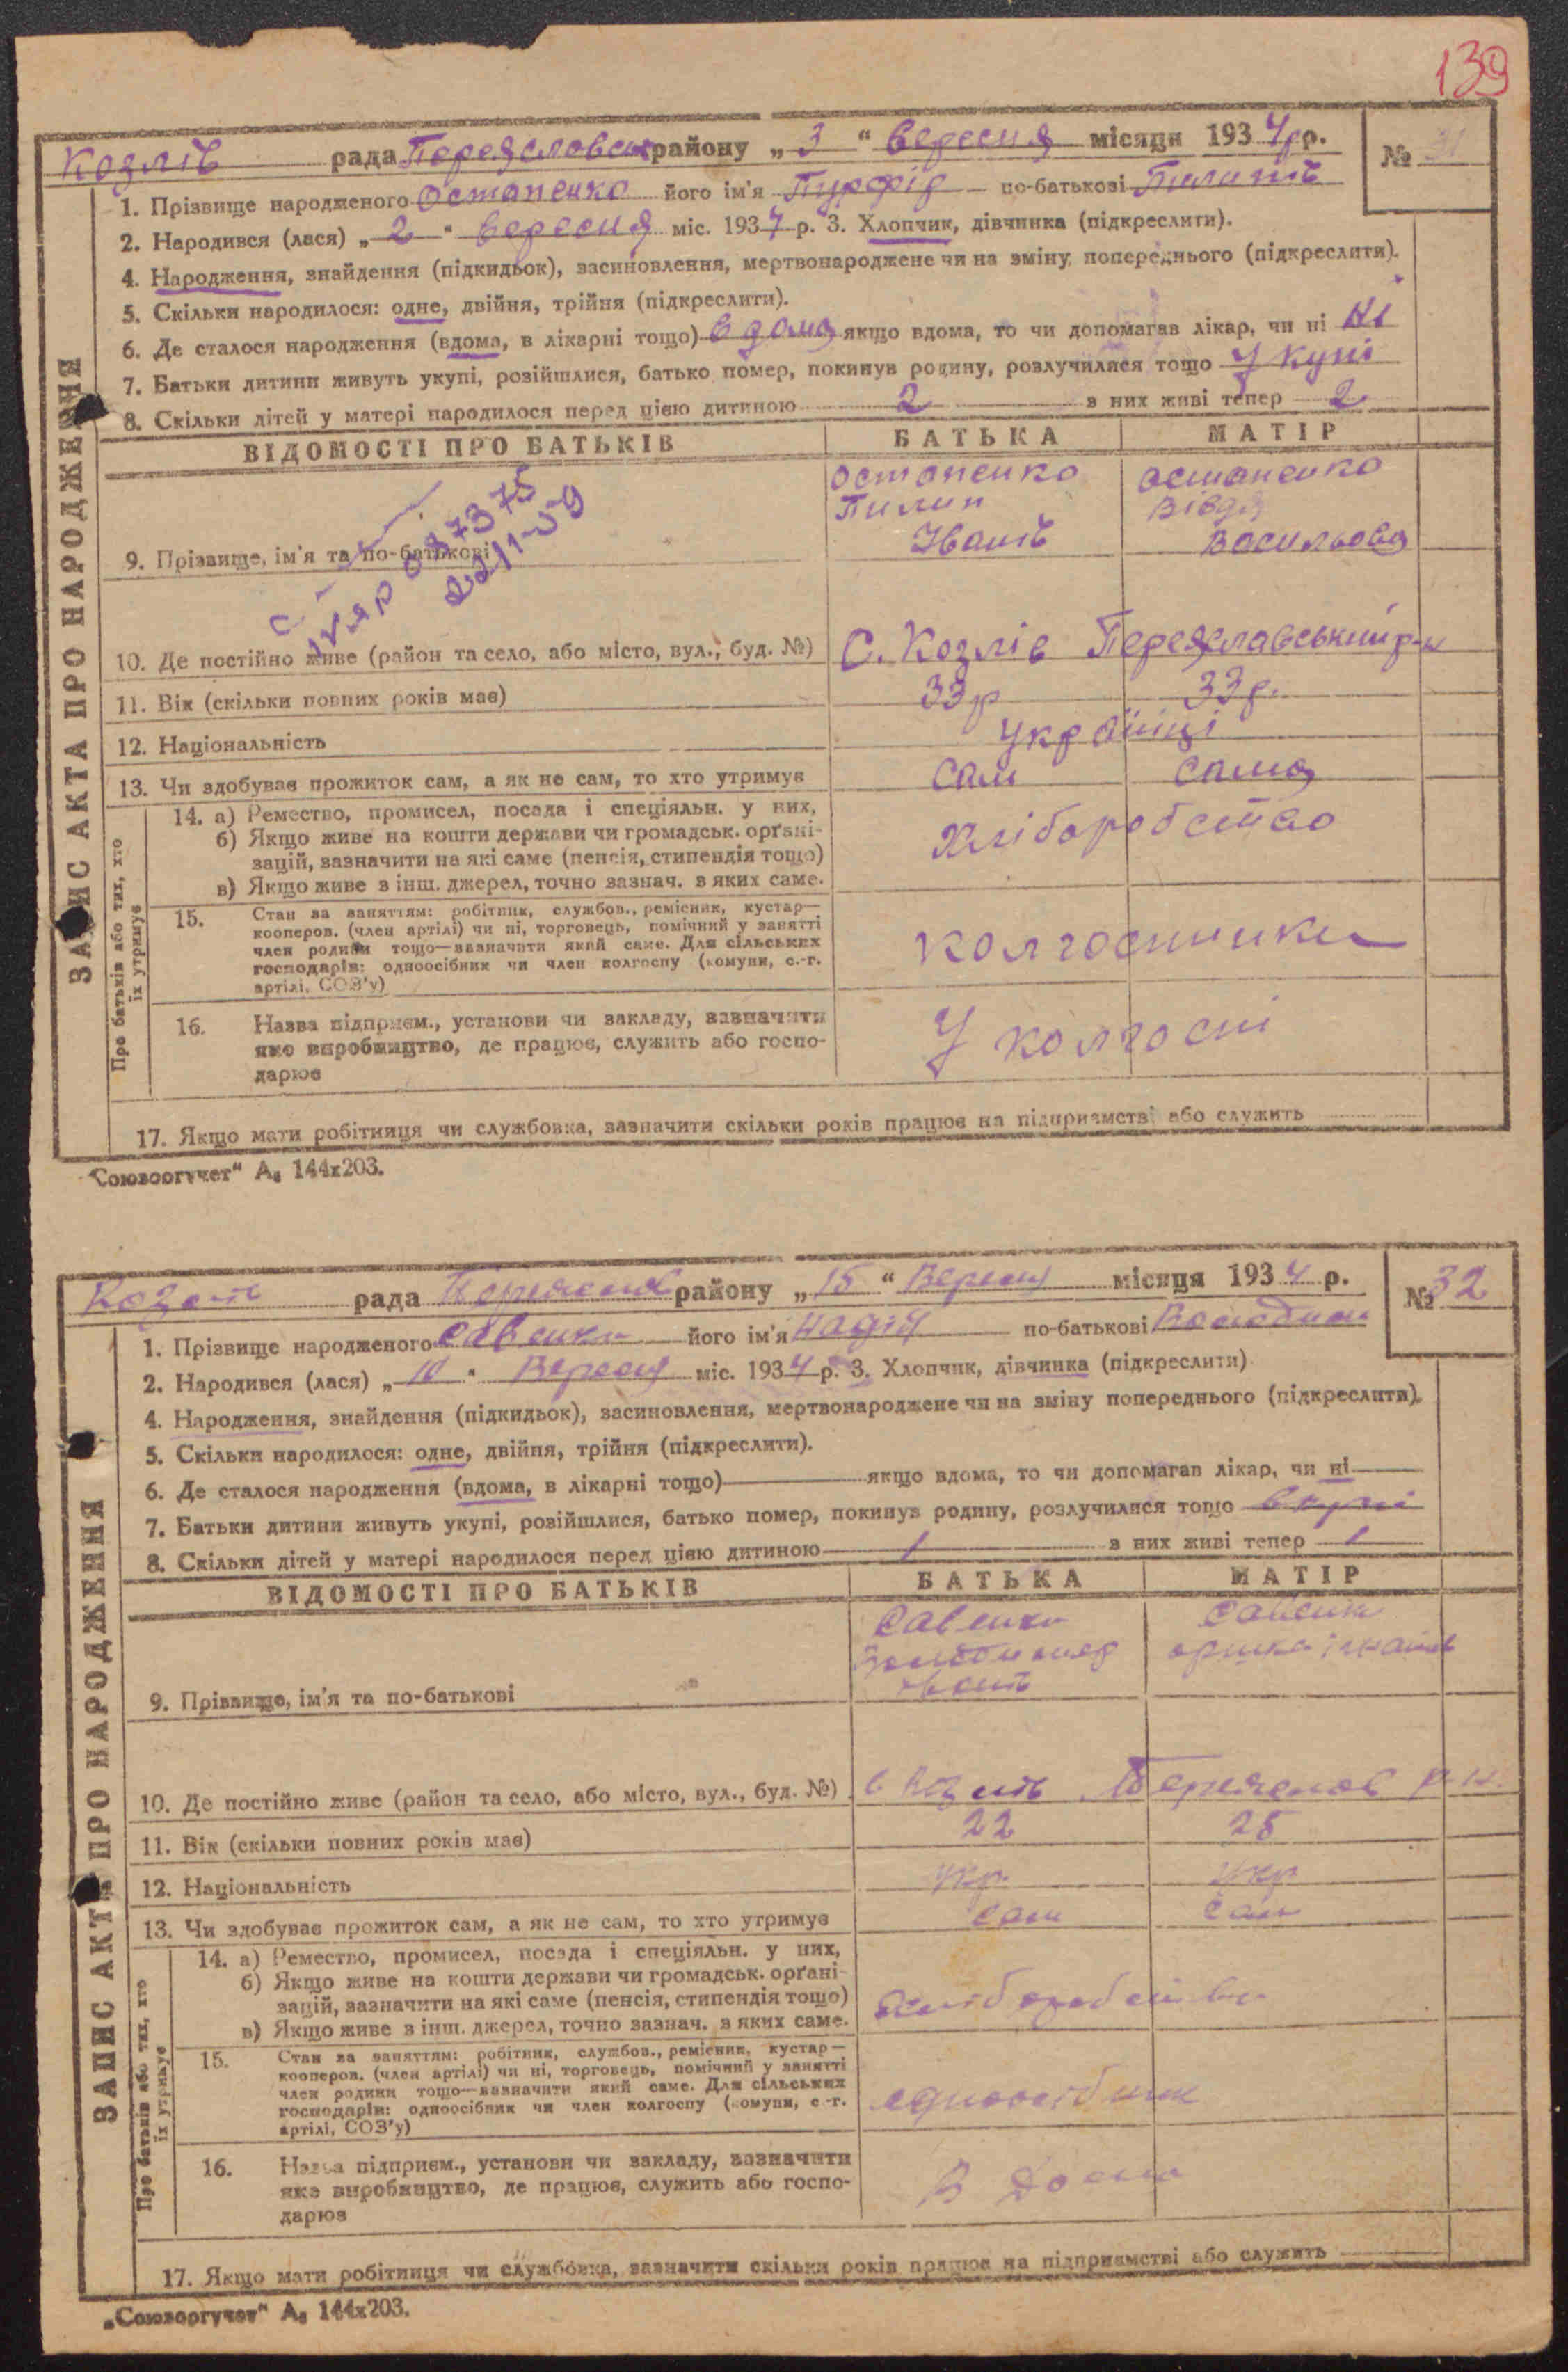 139
Козлів рада Переяславськ району „ 3 “ вересня місяця 1934 р. № 31
1. Прізвище народженого Остапенко його ім'я по-батькові Пилипів
2. Народився (лася) „ 2 “ вересня міс. 1934 р. 3. Хлопчик, дівчинка (підкреслити).
4. Народження, знайдення (підкидьок), засиновлення, мертвонароджене чи на зміну попереднього (підкреслити).
5. Скільки народилося: одне, двійня, трійня (підкреслити).
6. Де сталося народження (вдома, в лікарні тощо) вдома якщо вдома, то чи допомагав лікар, чи ні Ні
7. Батьки дитини живуть укупі, розійшлися, батько помер, покинув родину, розлучилися тощо У купі
8. Скільки дітей у матері народилося перед цією дитиною 2 з них живі тепер 2
ВІДОМОСТІ ПРО БАТЬКІВ БАТЬКА МАТІР
Остапенко Остапенко
Пилип Вівдя
9. Прізвище, ім'я та по-батькові Іванів Васильова
10. Де постійно живе (район та село, або місто, вул., буд. №) С. Козлів Переяславський р-н
11. Вік (скільки повних років має) 33р 33р.
12. Національність Українці
13. Чи здобуває прожиток сам, а як не сам, то хто утримує Сам Сама
14. а) Ремество, промисел, посада і спеціяльн. у них,
б) Якщо живе на кошти держави чи громадськ. орґані-
зацій, зазначити на які саме (пенсія, стипендія тощо)
в) Якщо живе з інш. джерел, точно зазнач. з яких саме.
Хліборобство
15. Стан за заняттям: робітник, службов., ремісник, кустар—
кооперов. (член артілі) чи ні, торговець, помічний у занятті
член родини тощо—зазначити який саме. Для сільських
господарів: одноосібник чи член колгоспу (комуни, с.-г.
артілі, СОЗ'у)
колгоспники
16. Назва підприєм., установи чи закладу, зазначити
яке виробництво, де працює, служить або госпо-
дарює
У колгоспі
17. Якщо мати робітниця чи службовка, зазначити скільки років працює на підприємстві або служить
ЗАПИС АКТА ПРО НАРОДЖЕННЯ
Про батьків або тих, хто
їх утримує
"Союзоргучет“ А₆ 144х203.
Козлів рада Переяслов району „ 15 “ Вересня місяця 1934 р. № 32
1. Прізвище народженого Савенко його ім'я Надія по-батькові
2. Народився (лася) „ 10 “ Вересня міс. 1934 р. 3. Хлопчик, дівчинка (підкреслити)
4. Народження, знайдення (підкидьок), засиновлення, мертвонароджене чи на зміну попереднього (підкреслити).
5. Скільки народилося: одне, двійня, трійня (підкреслити).
6. Де сталося народження (вдома, в лікарні тощо) якщо вдома, то чи допомагав лікар, чи ні
7. Батьки дитини живуть укупі, розійшлися, батько помер, покинув родину, розлучилися тощо вкупі
8. Скільки дітей у матері народилося перед цією дитиною 1 з них живі тепер 1
ВІДОМОСТІ ПРО БАТЬКІВ БАТЬКА МАТІР
Савенко Савенко
9. Прізвище, ім'я та по-батькові
10. Де постійно живе (район та село, або місто, вул., буд. №) с Козлів Переяслов р. н.
11. Вік (скільки повних років має) 22 25
12. Національність укр укр
13. Чи здобуває прожиток сам, а як не сам, то хто утримує Сам Сам
14. а) Ремество, промисел, посада і спеціяльн. у них,
б) Якщо живе на кошти держави чи громадськ. орґані-
зацій, зазначити на які саме (пенсія, стипендія тощо)
в) Якщо живе з інш. джерел, точно зазнач. з яких саме.
Хліборобство
15. Стан за заняттям: робітник, службов., ремісник, кустар—
кооперов. (член артілі) чи ні, торговець, помічний у занятті
член родини тощо—зазначити який саме. Для сільських
господарів: одноосібник чи член колгоспу (комуни, с.-г.
артілі, СОЗ'у)
одноосібник
16. Назва підприєм., установи чи закладу, зазначити
яке виробництво, де працює, служить або госпо-
дарює
17. Якщо мати робітниця чи службовка, зазначити скільки років працює на підприємстві або служить
ЗАПИС АКТА ПРО НАРОДЖЕННЯ
Про батьків або тих, хто
їх утримує
„Союзоргучет“ А₆ 144х203.